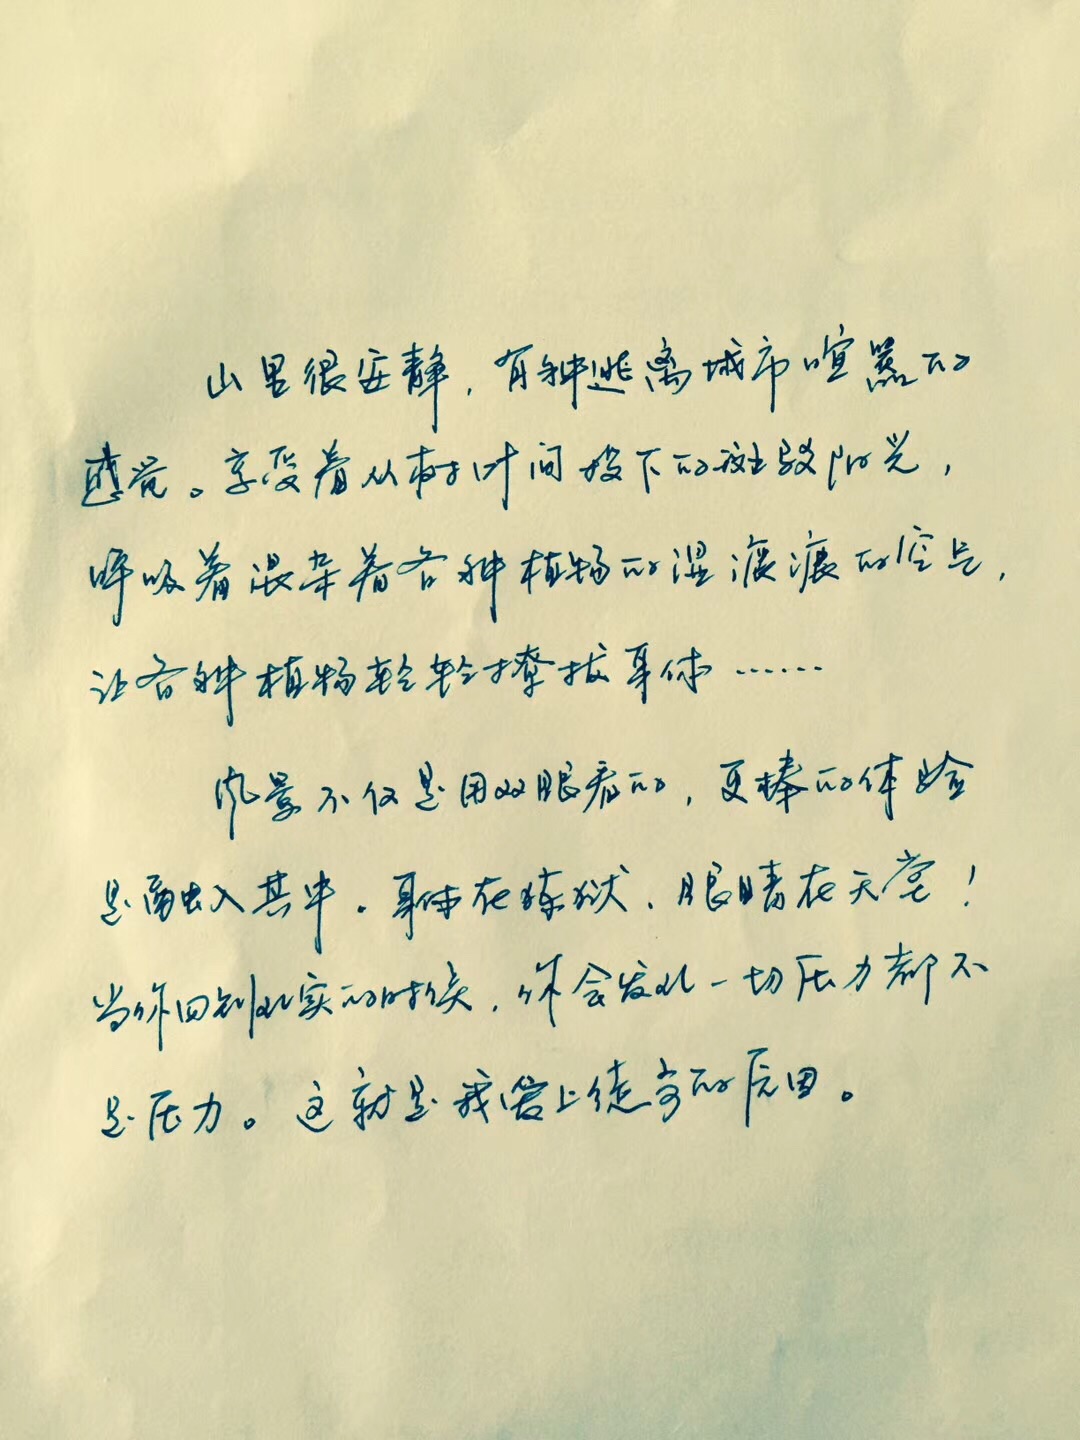 山里很安静，有种逃离城市喧嚣的
感觉。享受着从树叶间投下的斑驳阳光，
呼吸着混杂着各种植物的湿漉漉的空气，
让各种植物轻轻撩拨身体……
风景不仅是用双眼看的，更棒的体验
是融入其中。身体在炼狱、眼睛在天堂！
当你回到现实的时候，你会发现一切压力都不
是压力。这就是我爱上徒步的原因。